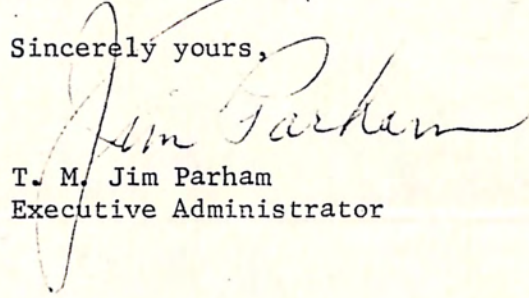 Sincerely yours,
Jim Parham
T. M. Jim Parham
Executive Administrator